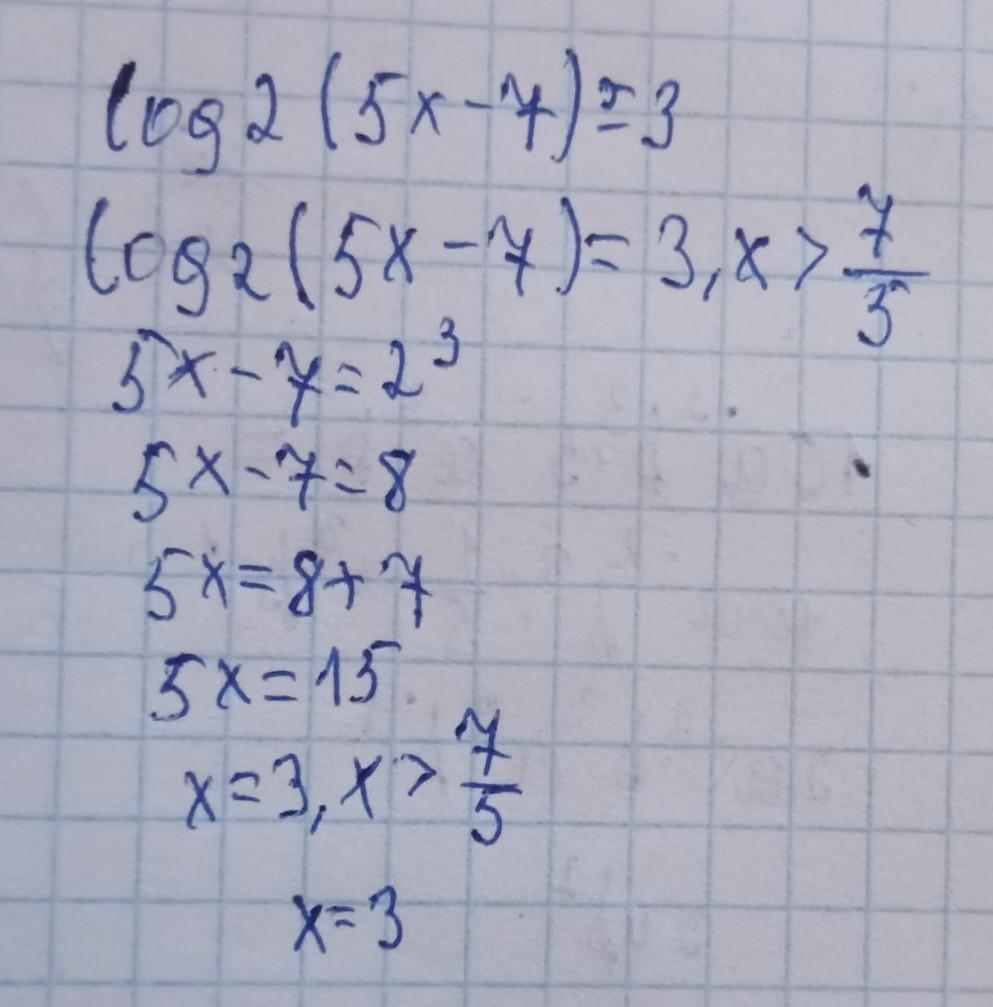 log2(5x-7)=3
log2(5x-7)=3,x>7/5
5x-7=2³
5x-7=8
5x=8+7
5x=15
x=3,x>7/5
x=3